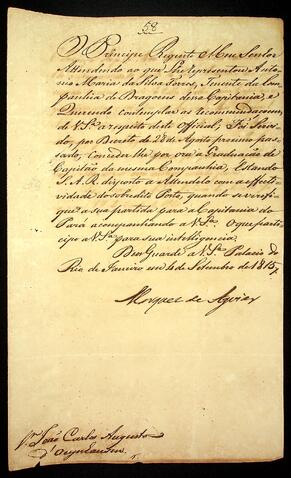 58
O Principe Regente Meu Senhor
Attendendo ao que Lhe representou Anto
nio Maria da Silva Torres, Tenente da Com
panhia de Dragoens dessa Capitania, e
Querendo contemplar as recommendaçoens
de V. Sª a respeito deste Official; Foi Servi
do, por Decreto de 28 de Agosto proximo pas
sado, conceder-lhe por ora a Graduação de
Capitão da mesma Companhia, Estando
S. A. R. disposto a Attendelo com a effecti
vidade do sobredito Posto, quando se verifi
que a sua partida para a Capitania do
Pará acompanhando a V. Sª. O que parti
cipo a V. Sª para sua intelligencia.
Deos Guarde a V. Sª Palacio do
Rio de Janeiro em 4 de Setembro de 1815
Marquez de Aguiar
Sr João Carlos Augusto
d'Oeynhausen.